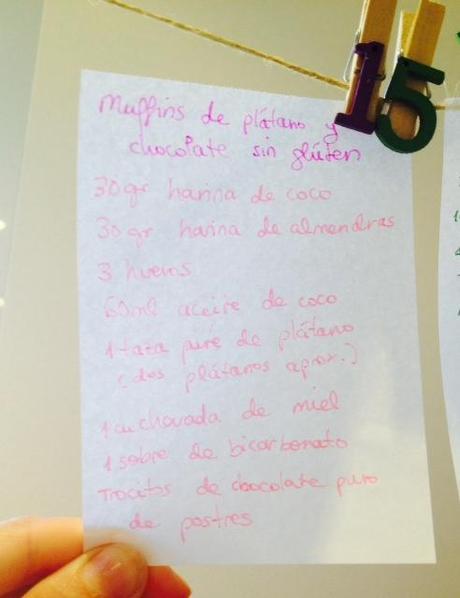 15
Muffins de plátano y
chocolate sin glúten
30gr harina de coco
30 gr harina de almendras
3 huevos
60ml aceite de coco
1 taza puré de plátano
(dos plátanos aprox.)
1 cucharada de miel
1 sobre de bicarbonato
Trocitos de chocolate puro
de postres